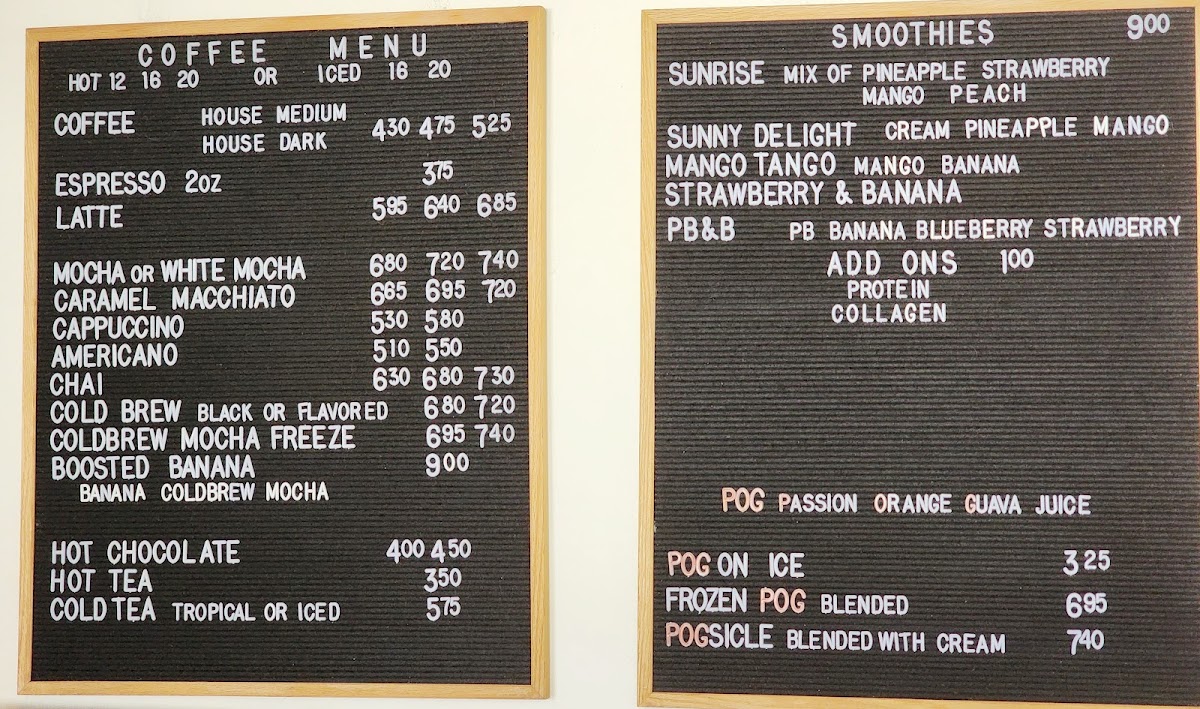 COFFEE MENU
HOT 12 16 20 OR ICED 16 20
COFFEE HOUSE MEDIUM
HOUSE DARK 430 475 525
ESPRESSO 2OZ 375
LATTE 595 640 685
MOCHA OR WHITE MOCHA 680 720 740
CARAMEL MACCHIATO 685 695 720
CAPPUCCINO 530 580
AMERICANO 510 550
CHAI 630 680 730
COLD BREW BLACK OR FLAVORED 680 720
COLDBREW MOCHA FREEZE 695 740
BOOSTED BANANA 900
BANANA COLDBREW MOCHA
HOT CHOCOLATE 400 450
HOT TEA 350
COLD TEA TROPICAL OR ICED 575
SMOOTHIES 900
SUNRISE MIX OF PINEAPPLE STRAWBERRY
MANGO PEACH
SUNNY DELIGHT CREAM PINEAPPLE MANGO
MANGO TANGO MANGO BANANA
STRAWBERRY & BANANA
PB&B PB BANANA BLUEBERRY STRAWBERRY
ADD ONS 100
PROTEIN
COLLAGEN
POG PASSION ORANGE GUAVA JUICE
POG ON ICE 325
FROZEN POG BLENDED 695
POGSICLE BLENDED WITH CREAM 740